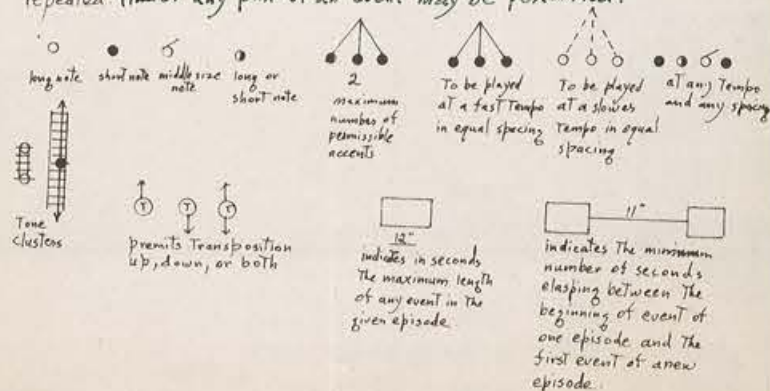 repeated. or any part of an event may be performed.
long note
short note
middle size
note
long or
short note
2
maximum
number of
permissible
accents
To be played
at a fast Tempo
in equal spacing
To be played
at a slower
Tempo in equal
spacing
at any Tempo
and any spacing
Tone
clusters
T T T
premits Transposition
up, down, or both
12"
indicates in seconds
The maximum length
of any event in The
given episode
11"
indicates The minimum
number of seconds
elasping between The
beginning of event of
one episode and The
first event of a new
episode.